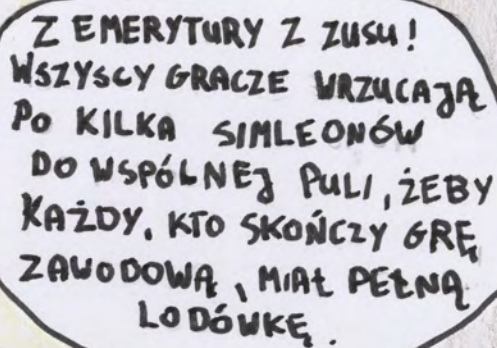 Z EMERYTURY Z ZUSU!
WSZYSCY GRACZE WRZUCAJĄ
PO KILKA SIMLEONÓW
DO WSPÓLNEJ PULI, ŻEBY
KAŻDY, KTO SKOŃCZY GRĘ
ZAWODOWĄ, MIAŁ PEŁNĄ
LODÓWKĘ.